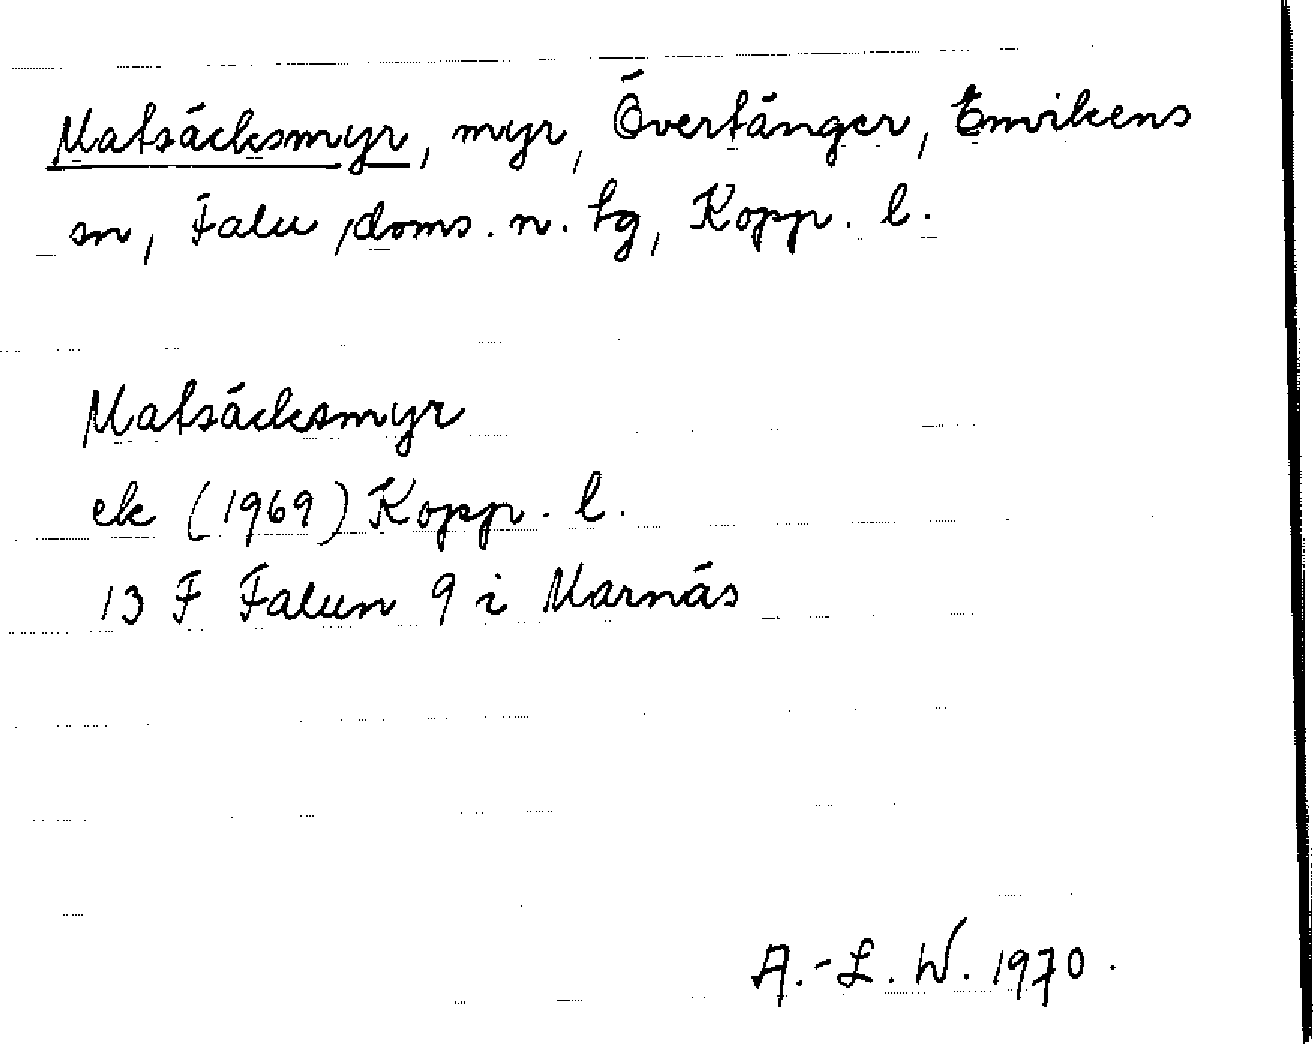 Matsäcksmyr, myr, Övertänger, Envikens
sn, Falu doms. n. tg, Kopp. l.
Matsäcksmyr
ek (1969) Kopp. l.
13 F Falun 9 i Marnäs
A.-L. W. 1970.